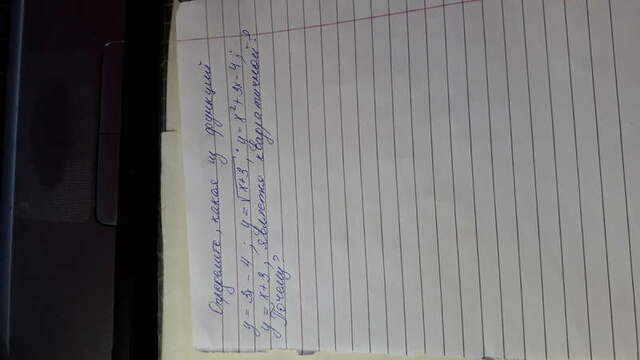 Определите, какая из функций
y = 3x - 4; y = √x+3; y = x² + 3x - 4;
y = x + 3, является квадратичной?
Почему?